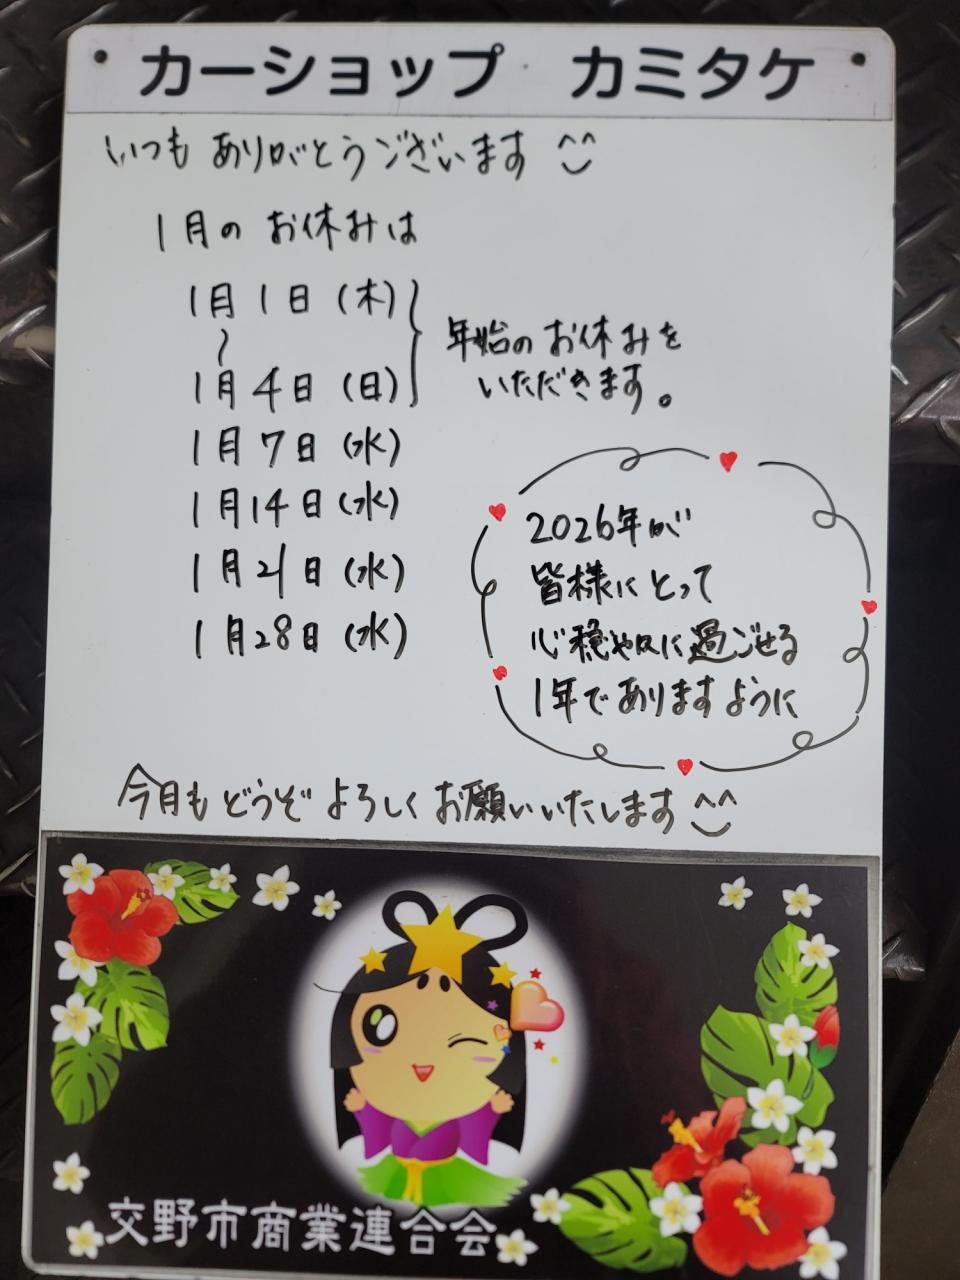 カーショップ カミタケ
いつも ありがとうございます ^^
1月の お休みは
1月 1日 (木)
〜
1月 4日 (日)
年始の お休みを
いただきます。
1月 7日 (水)
1月14日 (水)
1月21日 (水)
1月28日 (水)
2026年が
皆様にとって
心穏やかに過ごせる
1年でありますように
今月も どうぞ よろしく お願いいたします ^^
交野市商業連合会